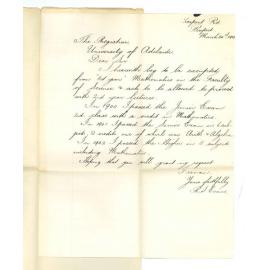 Seaport Rd
Newport
March 20th 190
The Registrar
University of Adelaide
Dear Sir
I herewith beg to be exempted
from 1st year Mathematics in the Faculty
of Science & ask to be allowed to proceed
with 2nd year lectures.
In 1900 I passed the Junior Exam
2nd class with a credit in Mathematics.
In 1901 I passed the Senior Exam in
subjects, 2 credits one of which was Arith & Algebra
In 1903 I passed the Higher in subjects
including Mathematics.
Hoping that you will grant my request
I remain
Yours faithfully